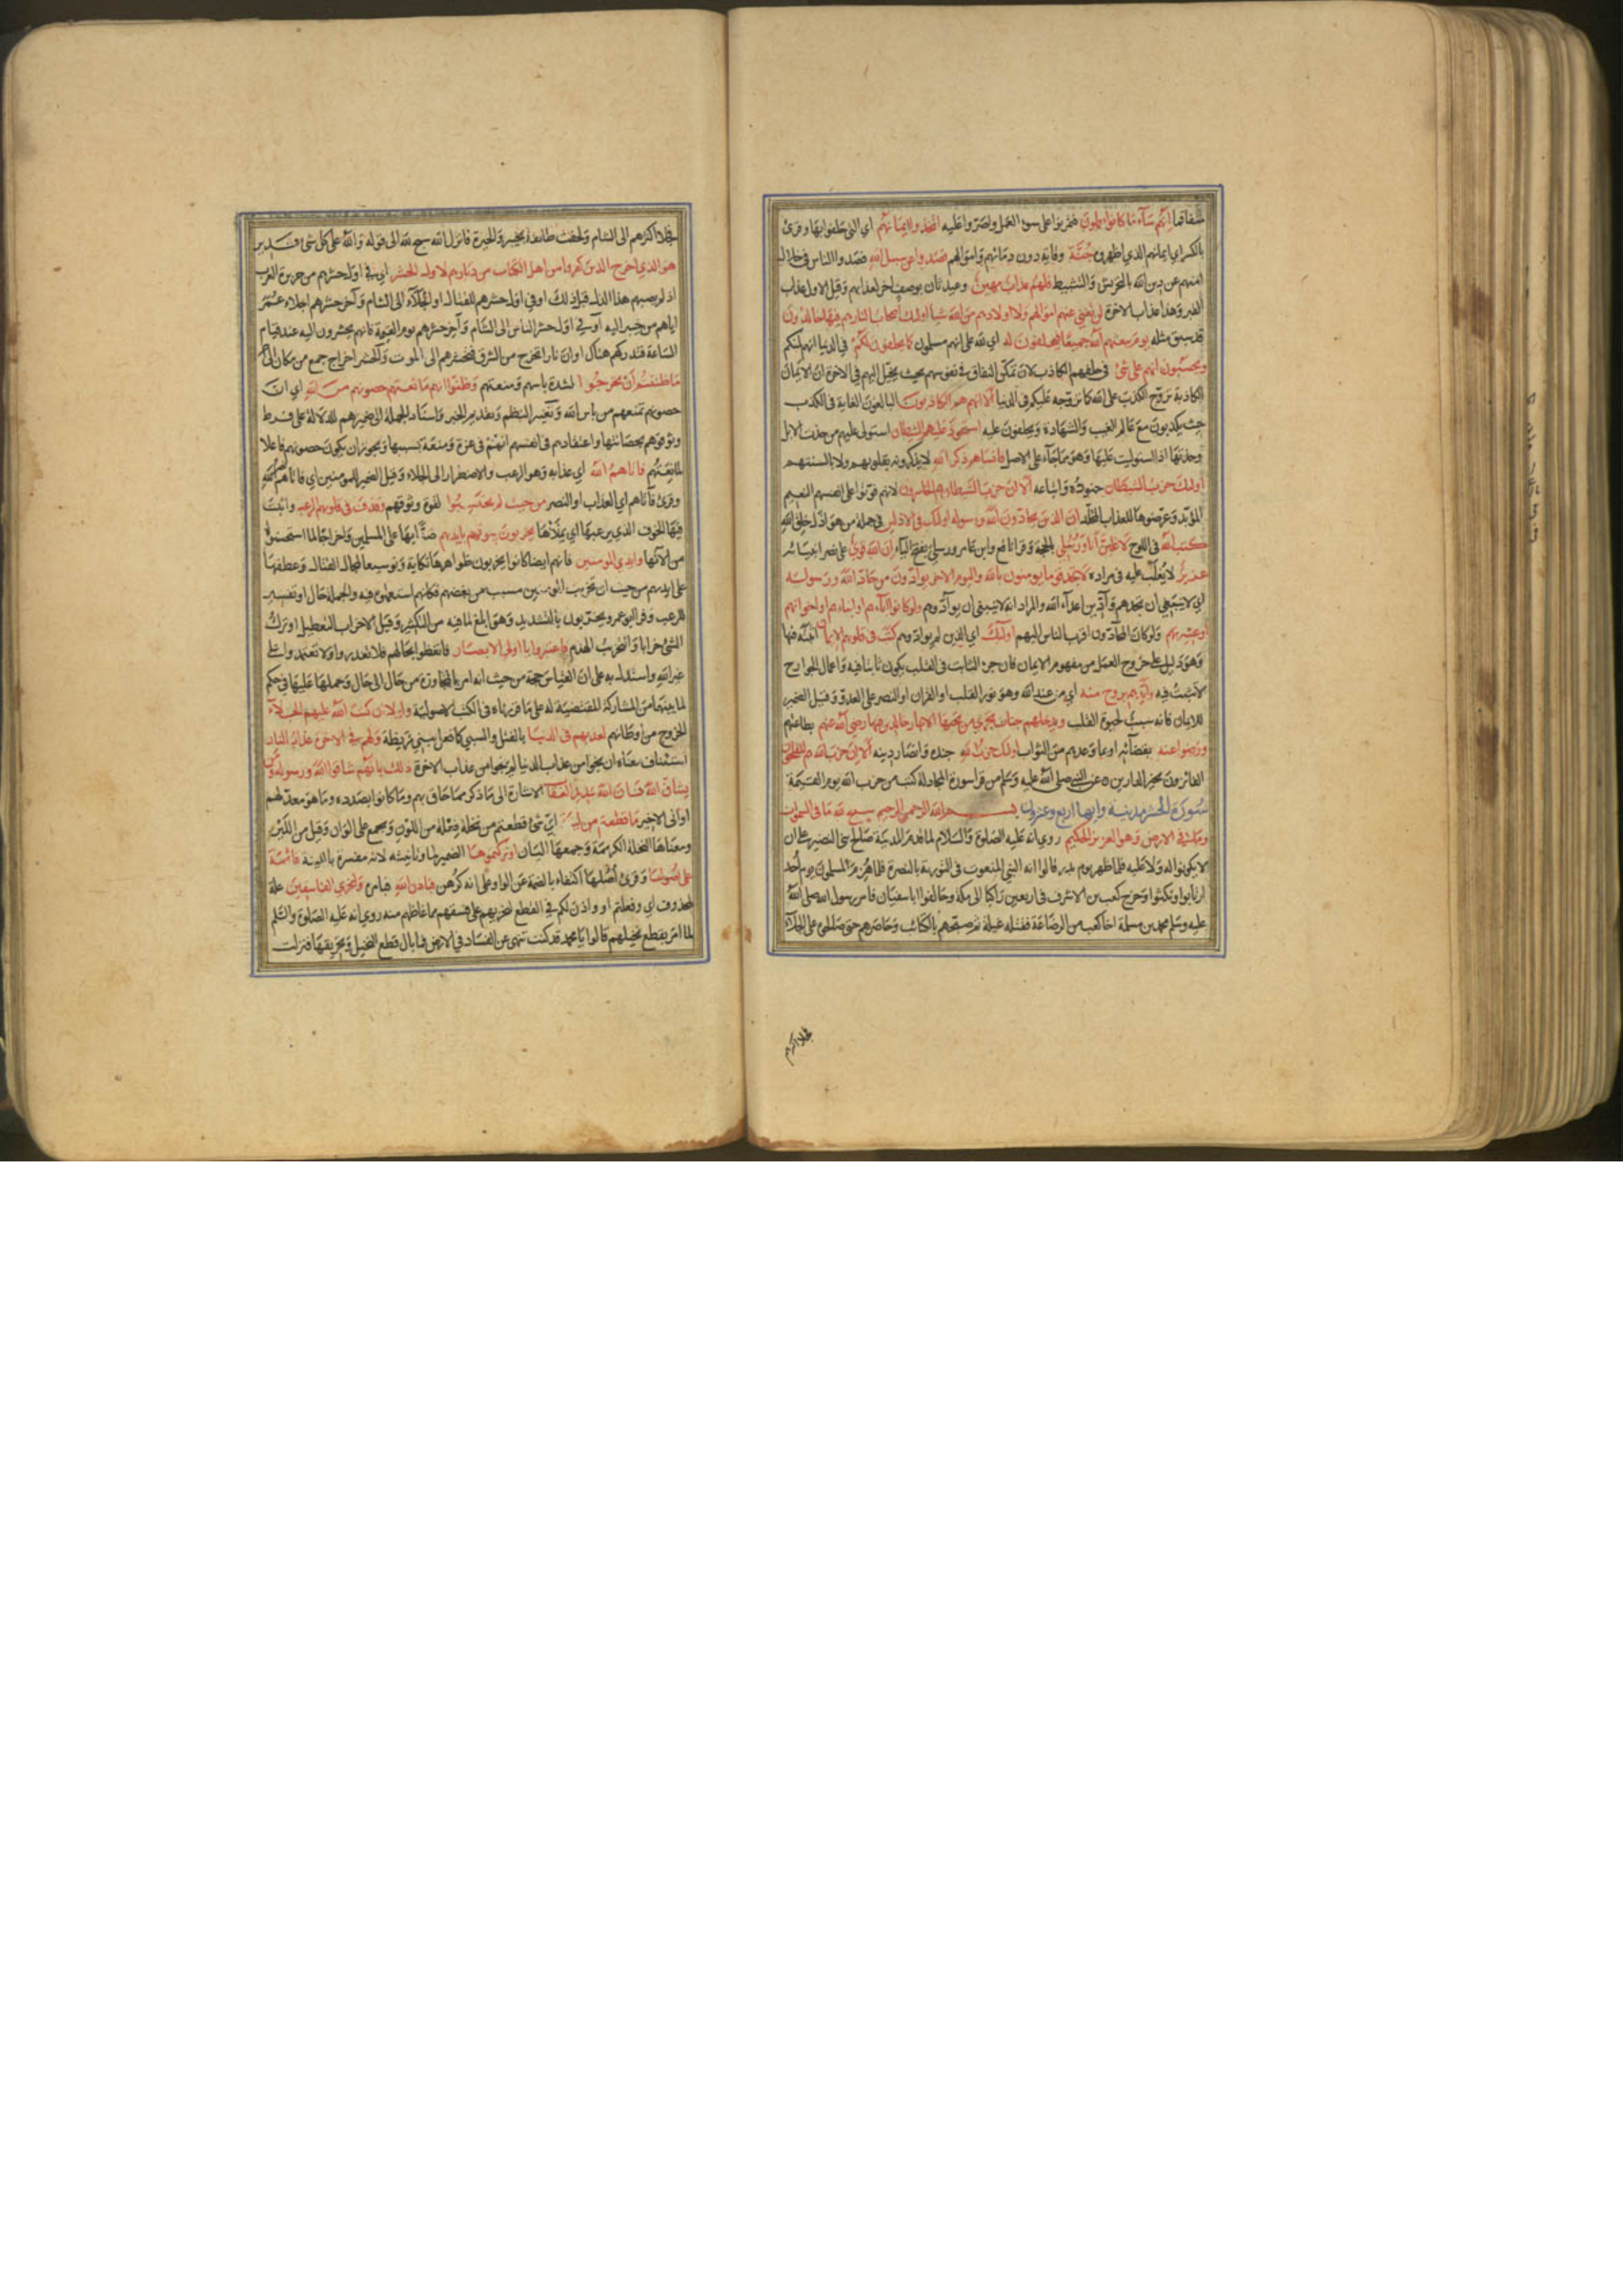 شفاقما إنهم ساء ما كانوا يعملون فتمرنوا على سوء العمل واصروا عليه اتخذوا ايمانهم اي التي حلفوا بها وقرئ
بالكسر اي ايمانهم الذي اظهروه جنة وقاية دون دمائهم واموالهم فصدوا عن سبيل الله فصدوا الناس في خلال
امنهم عن دين الله بالتحريش والتثبيط فلهم عذاب مهين وعيد ثان بوصف اخر لعذابهم وقيل الاول عذاب
القبر وهذا عذاب الاخرة لن تغني عنهم اموالهم ولا اولادهم من الله شيا اولئك اصحاب النار هم فيها خالدون
قد سبق مثله يوم يبعثهم الله جميعا فيحلفون له اي لله على انهم مسلمون كما يحلفون لكم في الدنيا انهم لمنكم
ويحسبون انهم على شئ في حلفهم الكاذب لان تمكن النفاق في نفوسهم بحيث يخيل اليهم في الاخرة ان الايمان
الكاذبة تروج الكذب على الله كما تروجه عليكم في الدنيا الا انهم هم الكاذبون البالغون الغاية في الكذب
حيث يكذبون مع عالم الغيب والشهادة ويحلفون عليه استحوذ عليهم الشيطان استولى عليهم من حذت الابل
وحذتها اذا استوليت عليها وهو مما جاء على الاصل فانساهم ذكر الله لا يذكرونه بقلوبهم ولا بالسنتهم
اولئك حزب الشيطان جنوده واتباعه الا ان حزب الشيطان هم الخاسرون لانهم فوتوا على انفسهم النعيم
المؤبد وعرضوها للعذاب المخلد ان الذين يحادون الله ورسوله اولئك في الاذلين في جملة من هو اذل خلق الله
كتب الله في اللوح لاغلبن انا ورسلي بالحجة وقرا نافع وابن عامر ورسلي بفتح الياء ان الله قوي على نصر انبيائه
عزيز لا يغلب عليه في مراده لا تجد قوما يومنون بالله واليوم الاخر يوادون من حاد الله ورسوله
اي لا ينبغي ان تجدهم وادين اعداء الله والمراد انه لا ينبغي ان يوادوهم ولو كانوا اباءهم او ابناءهم او اخوانهم
او عشيرتهم ولو كان المحادون اقرب الناس اليهم اولئك اي الذين لم يوادوهم كتب في قلوبهم الايمان اثبته فيها
وهو دليل على خروج العمل من مفهوم الايمان فان جزء الثابت في القلب يكون ثابتا فيه واعمال الجوارح
لا تثبت فيه وايدهم بروح منه اي من عند الله وهو نور القلب او القران او النصر على العدو وقيل الضمير
للايمان فانه سبب لحيوة القلب ويدخلهم جنات تجري من تحتها الانهار خالدين فيها رضي الله عنهم بطاعتهم
ورضوا عنه بقضائه او بما وعدهم من الثواب اولئك حزب الله جنده وانصار دينه الا ان حزب الله هم المفلحون
الفائزون بخير الدارين عن النبي صلى الله عليه وسلم من قرا سورة المجادلة كتب من حزب الله يوم القيمة
سورة الحشر مدينية وايها اربع وعشرون بسم الله الرحمن الرحيم سبح لله ما في السموات
وما في الارض وهو العزيز الحكيم روي انه عليه الصلوة والسلام لما قدم المدينة صالح بني النضير على ان
لا يكونوا له ولا عليه فلما ظهر يوم بدر قالوا انه النبي المنعوت في التورية بالنصرة فلما هزم المسلمون يوم احد
ارتابوا ونكثوا وخرج كعب بن الاشرف في اربعين راكبا الى مكة وحالفوا ابا سفيان فامر رسول الله صلى الله
عليه وسلم محمد بن مسلمة اخا كعب من الرضاعة فقتله غيلة ثم صبحهم بالكتائب وحاصرهم حتى صالحوا على الجلاء
فجلا اكثرهم
فجلا اكثرهم الى الشام ولحقت طائفة بخيبر والحيرة فانزل الله سبح لله الى قوله والله على كل شئ قدير
هو الذي اخرج الذين كفروا من اهل الكتاب من ديارهم لاول الحشر اي في اول حشرهم من جزيرة العرب
اذ لم يصبهم هذا الذل قبل ذلك او في اول حشرهم للقتال او الجلاء الى الشام واخر حشرهم اجلاء عمر
اياهم من خيبر اليه او في اول حشر الناس الى الشام واخر حشرهم يوم القيمة فانهم يحشرون اليه عند قيام
الساعة فتدركهم هناك او ان نارا تخرج من المشرق فتحشرهم الى الموت والحشر اخراج جمع من مكان الى اخر
ما ظننتم أن يخرجوا لشدة باسهم ومنعتهم وظنوا انهم مانعتهم حصونهم من الله اي ان
حصونهم تمنعهم من باس الله وتغيير النظم وتقديم الخبر واسناد الجملة الى ضميرهم للدلالة على فرط
وثوقهم بحصانتها واعتقادهم في انفسهم انهم في عزة ومنعة بسببها ويجوز ان يكون حصونهم فاعلا
لمانعتهم فاتاهم الله اي عذابه وهو الرعب والاضطرار الى الجلاء وقيل الضمير للمومنين اي فاتاهم نصر الله
وقرئ فآتاهم اي العذاب او النصر من حيث لم يحتسبوا لقوة وثوقهم وقذف في قلوبهم الرعب واثبت
فيها الخوف الذي يرعبها اي يملأها يخربون بيوتهم بايديهم ضنا بها على المسلمين واخراجا لما استحسنوا
من الاتها وايدي المومنين فانهم ايضا كانوا يخربون ظواهرها نكاية وتوسيعا لمجال القتال وعطفها
على ايديهم من حيث ان تخريب المومنين مسبب من بغضهم فكانهم استعملوهم فيه والجملة حال او تفسير
للرعب وقرا ابو عمرو يخربون بالتشديد وهو ابلغ لما فيه من التكثير وقيل الاخراب التعطيل او ترك
الشئ خرابا والتخريب الهدم فاعتبروا يا اولي الابصار فاتعظوا بحالهم فلا تغدروا ولا تعتمدوا على
غير الله واستدل به على ان القياس حجة من حيث انه امر بالمجاوزة من حال الى حال وحملها عليها في حكم
لما بينهما من المشاركة المقتضية له على ما قررناه في الكتب الاصولية ولولا ان كتب الله عليهم الجلاء
الخروج من اوطانهم لعذبهم في الدنيا بالقتل والسبي كما فعل ببني قريظة ولهم في الاخرة عذاب النار
استيناف معناه ان نجوا من عذاب الدنيا لم ينجوا من عذاب الاخرة ذلك بانهم شاقوا الله ورسوله ومن
يشاق الله فان الله شديد العقاب الاشارة الى ما ذكر مما حاق بهم وما كانوا بصدده وما هو معد لهم
او الى الاخير ما قطعتم من لينة اي شئ قطعتم من نخلة فعلة من اللون ويجمع على الوان وقيل من اللين
ومعناها النخلة الكريمة وجمعها اليان او تركتموها الضمير لما وتانيثه لانه مفسرة باللينة قائمة
على اصولها وقرئ أصلها اكتفاء بالضمة عن الواو وعلى انه كرهن فباذن الله فبامره وليخزي الفاسقين علة
لمحذوف اي وفعلتم او واذن لكم في القطع ليخزيهم على فسقهم بما غاظهم منه روي انه عليه الصلوة والسلم
لما امر بقطع نخيلهم قالوا يا محمد قد كنت تنهى عن الفساد في الارض فما بال قطع النخيل وتحريقها فنزلت